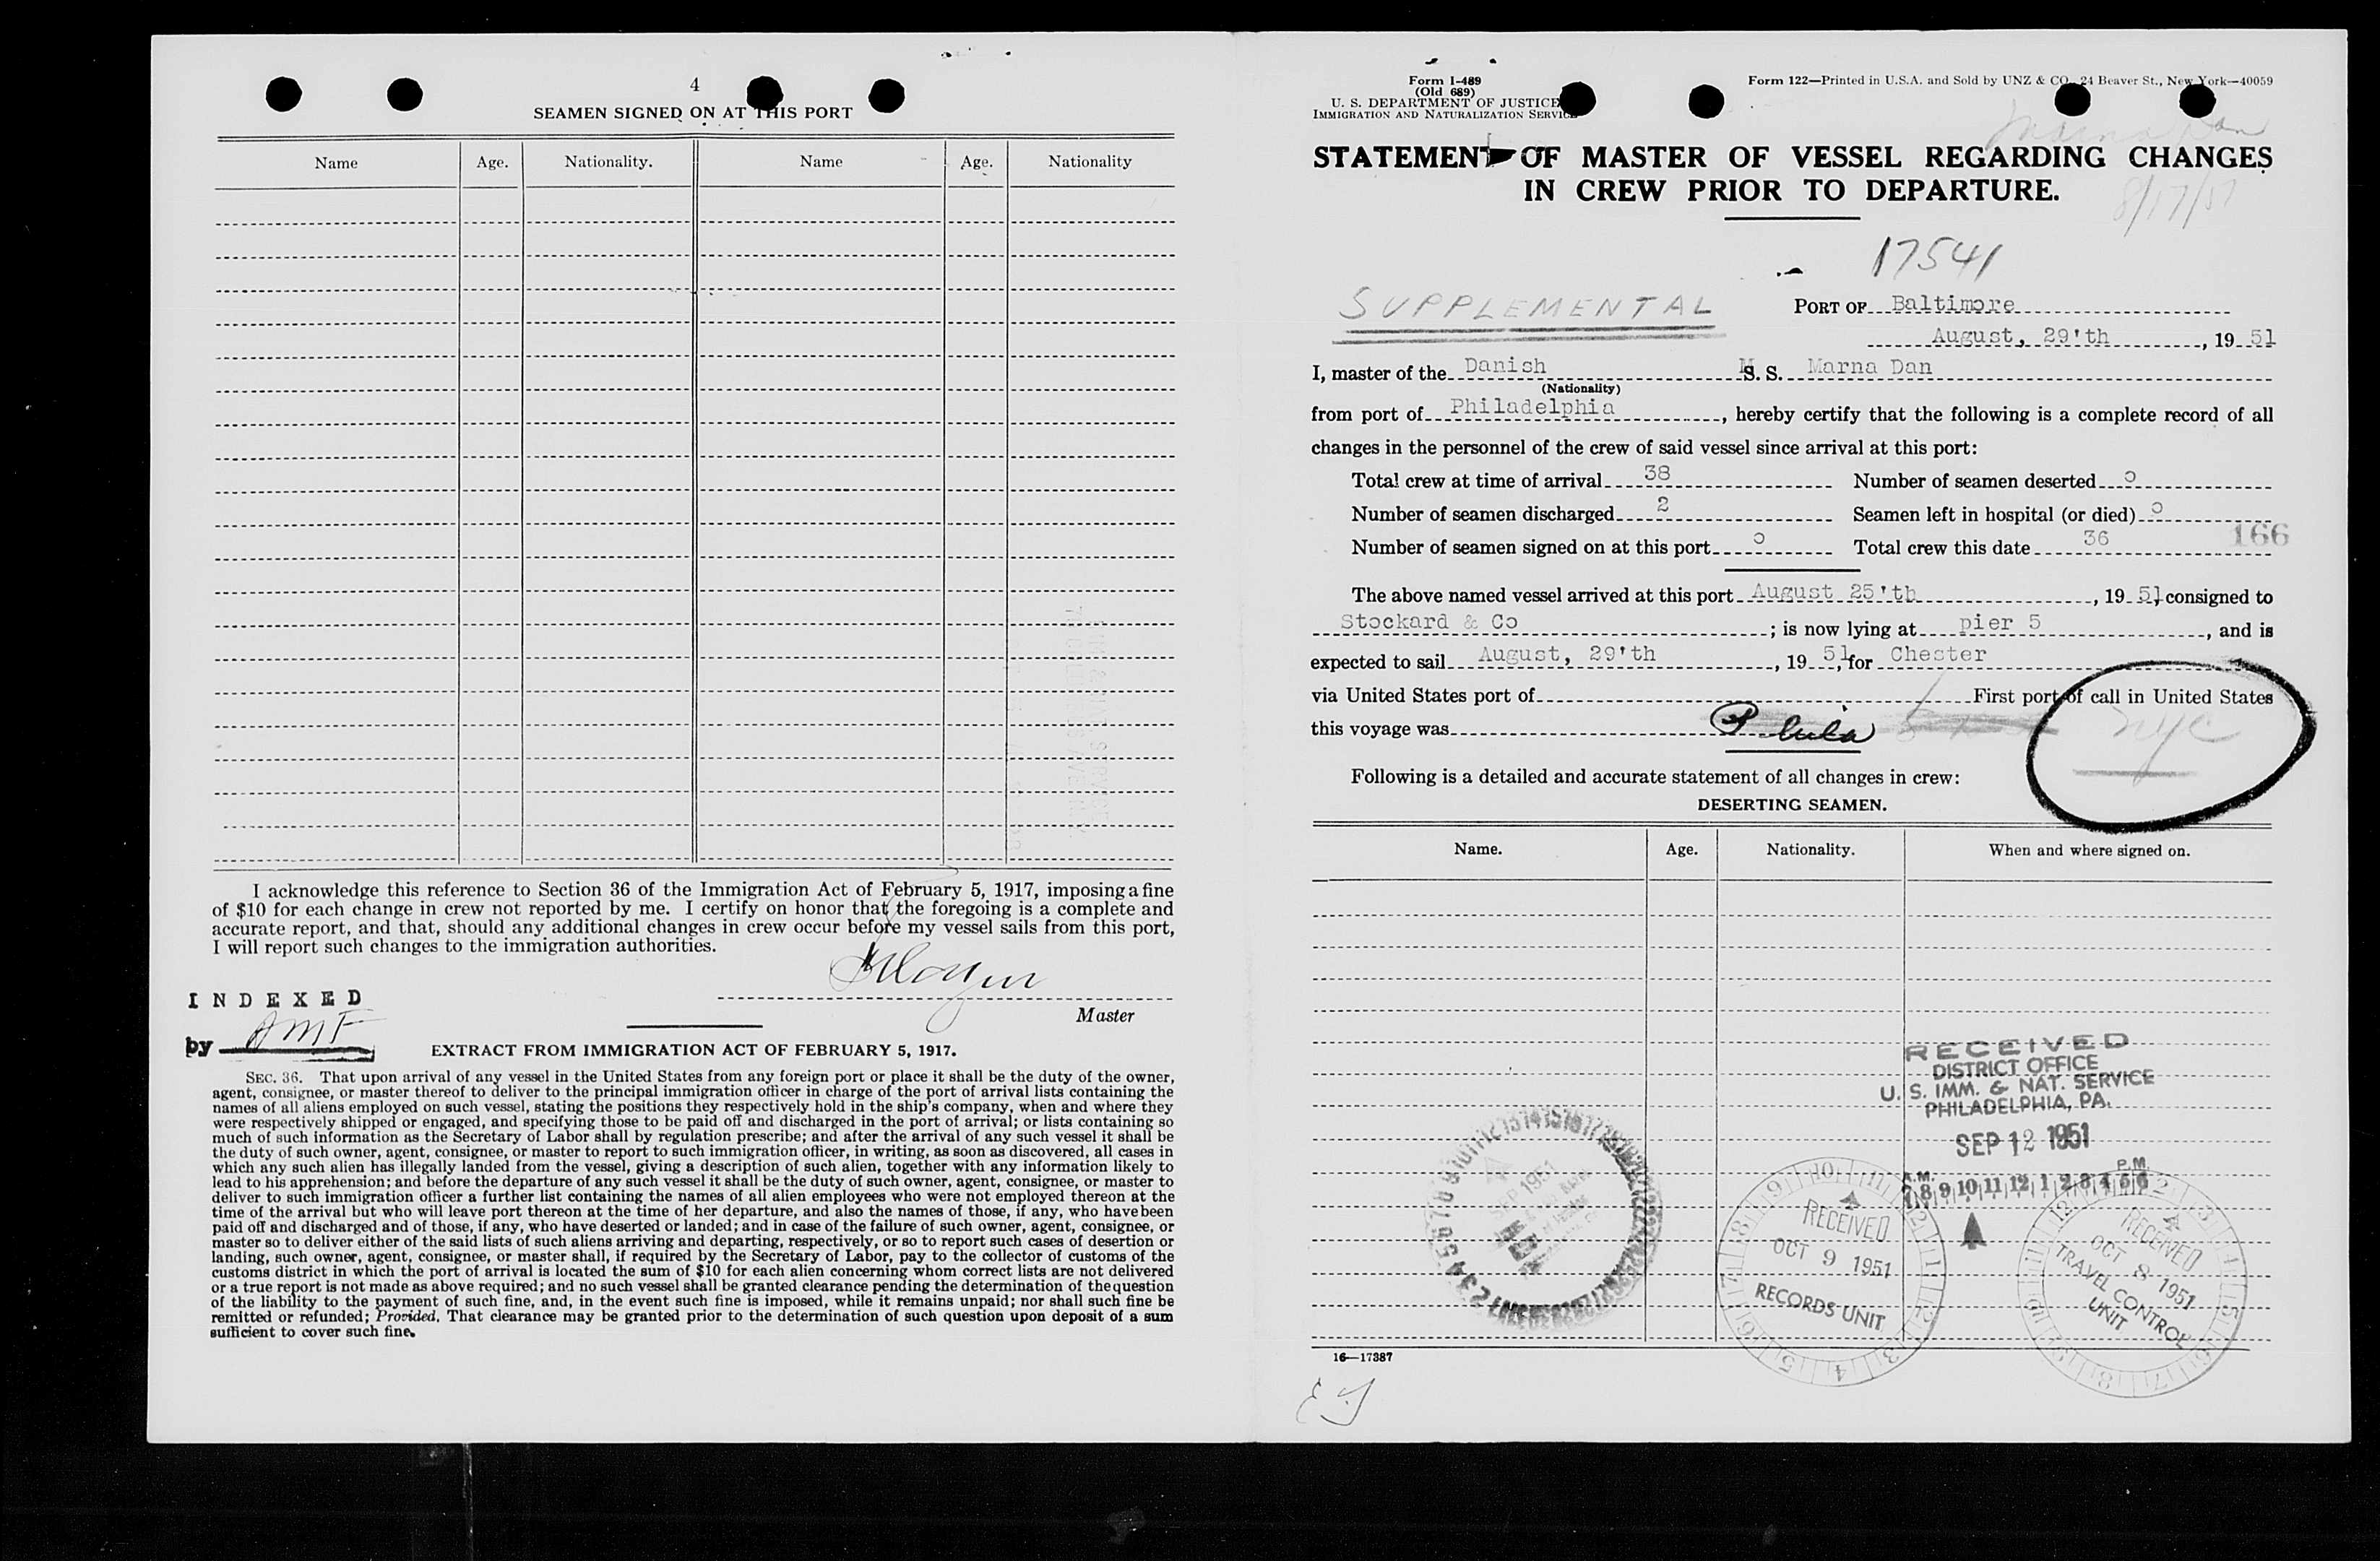 4
SEAMEN SIGNED ON AT THIS PORT
Name Age. Nationality. Name Age. Nationality
I acknowledge this reference to Section 36 of the Immigration Act of February 5, 1917, imposing a fine
of $10 for each change in crew not reported by me. I certify on honor that the foregoing is a complete and
accurate report, and that, should any additional changes in crew occur before my vessel sails from this port,
I will report such changes to the immigration authorities.
INDEXED
by AMF
Master
EXTRACT FROM IMMIGRATION ACT OF FEBRUARY 5, 1917.
SEC. 36. That upon arrival of any vessel in the United States from any foreign port or place it shall be the duty of the owner,
agent, consignee, or master thereof to deliver to the principal immigration officer in charge of the port of arrival lists containing the
names of all aliens employed on such vessel, stating the positions they respectively hold in the ship's company, when and where they
were respectively shipped or engaged, and specifying those to be paid off and discharged in the port of arrival; or lists containing so
much of such information as the Secretary of Labor shall by regulation prescribe; and after the arrival of any such vessel it shall be
the duty of such owner, agent, consignee, or master to report to such immigration officer, in writing, as soon as discovered, all cases in
which any such alien has illegally landed from the vessel, giving a description of such alien, together with any information likely to
lead to his apprehension; and before the departure of any such vessel it shall be the duty of such owner, agent, consignee, or master to
deliver to such immigration officer a further list containing the names of all alien employees who were not employed thereon at the
time of the arrival but who will leave port thereon at the time of her departure, and also the names of those, if any, who have been
paid off and discharged and of those, if any, who have deserted or landed; and in case of the failure of such owner, agent, consignee, or
master so to deliver either of the said lists of such aliens arriving and departing, respectively, or so to report such cases of desertion or
landing, such owner, agent, consignee, or master shall, if required by the Secretary of Labor, pay to the collector of customs of the
customs district in which the port of arrival is located the sum of $10 for each alien concerning whom correct lists are not delivered
or a true report is not made as above required; and no such vessel shall be granted clearance pending the determination of the question
of the liability to the payment of such fine, and, in the event such fine is imposed, while it remains unpaid; nor shall such fine be
remitted or refunded; Provided, That clearance may be granted prior to the determination of such question upon deposit of a sum
sufficient to cover such fine.
Form I-489
(Old 689)
U. S. DEPARTMENT OF JUSTICE
IMMIGRATION AND NATURALIZATION SERVICE
Form 122—Printed in U.S.A. and Sold by UNZ & CO. 24 Beaver St., New York—40059
Marna Dan
STATEMENT OF MASTER OF VESSEL REGARDING CHANGES
IN CREW PRIOR TO DEPARTURE.
8/17/51
17541
SUPPLEMENTAL
PORT OF Baltimore
August, 29'th, 19 51
I, master of the Danish M S. S. Marna Dan
(Nationality)
from port of Philadelphia, hereby certify that the following is a complete record of all
changes in the personnel of the crew of said vessel since arrival at this port:
Total crew at time of arrival 38 Number of seamen deserted o
Number of seamen discharged 2 Seamen left in hospital (or died) o
Number of seamen signed on at this port o Total crew this date 36
166
The above named vessel arrived at this port August 25'th, 19 51, consigned to
Stockard & Co; is now lying at pier 5, and is
expected to sail August, 29'th, 19 51, for Chester
via United States port of First port of call in United States
this voyage was Phila
NYC
Following is a detailed and accurate statement of all changes in crew:
DESERTING SEAMEN.
Name. Age. Nationality. When and where signed on.
RECEIVED
DISTRICT OFFICE
U. S. IMM. & NAT. SERVICE
PHILADELPHIA, PA.
SEP 12 1951
A.M. P.M.
7 8 9 10 11 12 1 2 3 4 5 6
RECEIVED
OCT 9 1951
RECORDS UNIT
RECEIVED
OCT 8 1951
TRAVEL CONTROL
UNIT
16—17387